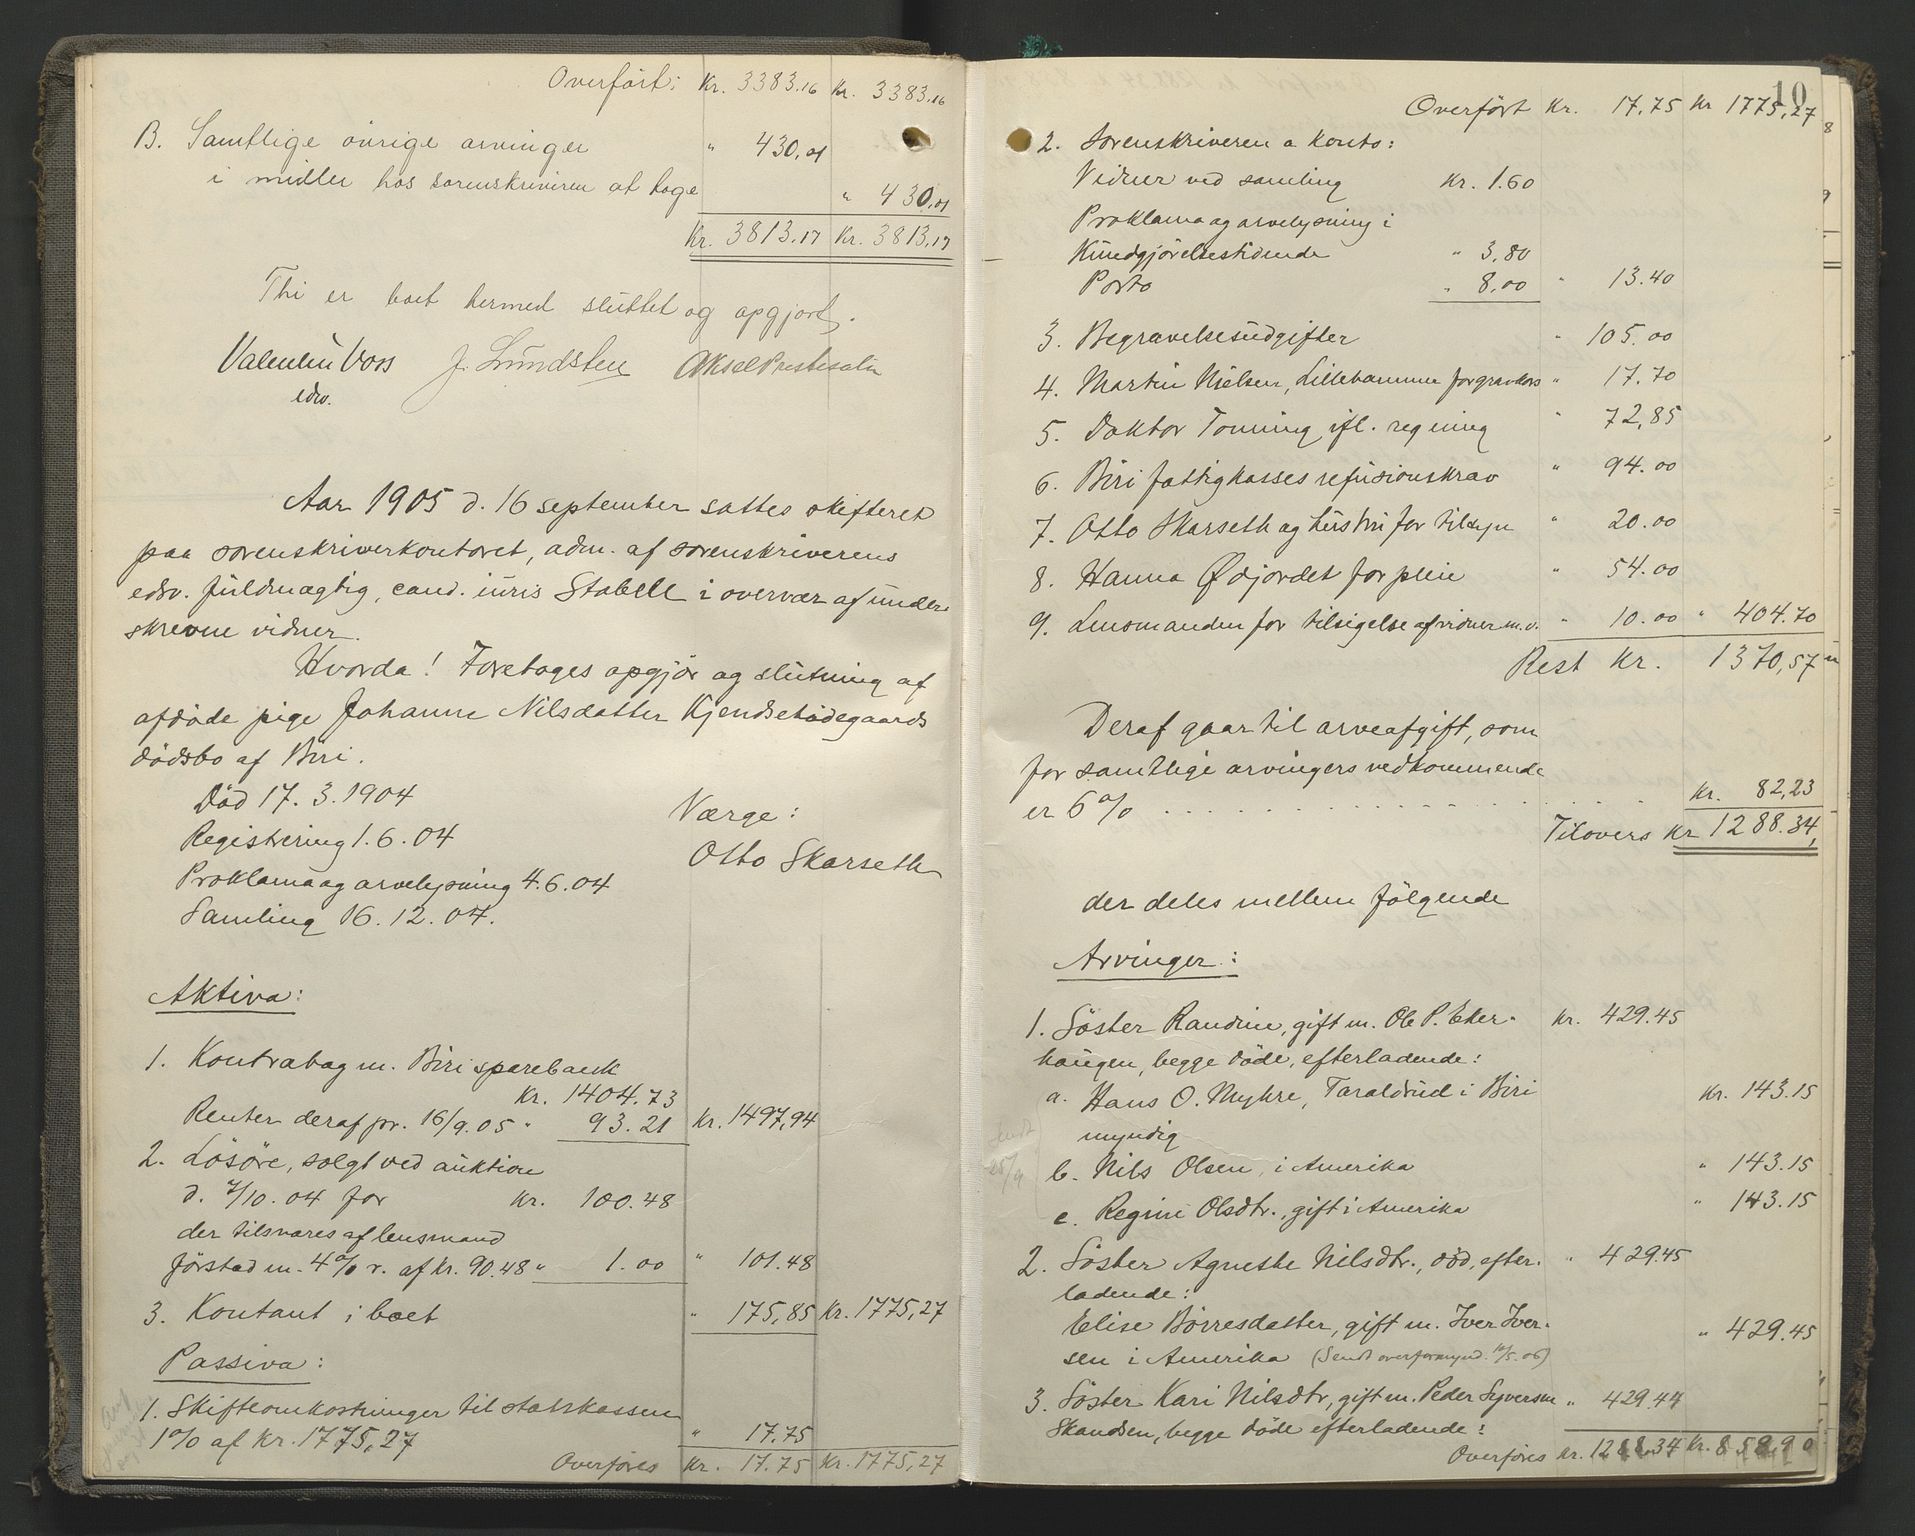 Overført: Kr. 3383.16 Kr. 3383.16
B. Samtlige øvrige arvinger " 430,01
i midler hos sorenskriveren at tage " 430,01
Kr. 3813.17 Kr. 3813.17
Thi er boet hermed sluttet og opgjort.
Valentin Voss J. Lundsten Aksel
edsv.
Aar 1905 d. 16 september sattes skifteret
paa sorenskriverkontoret, adm. af sorenskriverens
edsv. fuldmægtig, cand. iuris Stabell i overvær af under-
skrevne vidner.
Hvorda! Foretoges opgjør og slutning af
afdøde pige Johanne Nilsdatter Kjendsetødegaards
dødsbo af Biri.
Død 17. 3. 1904
Værge:
Registrering 1. 6. 04
Otto Skarseth
Proklama og arvelysning 4. 6. 04
Samling 16. 12. 04.
Aktiva:
1. Kontrabog m. Biri sparebank
Kr. 1404.73
Renter deraf pr. 16/9. 05 " 93.21 Kr. 1497,94
2. Løsøre, solgt ved auktion
d. 7/10. 04 for Kr. 100.48
der tilsvares af lensmand
Jørstad m. 4% r. af Kr. 90.48 " 1.00 " 101.48
3. Kontant i boet " 175,85 Kr. 1775,27
Passiva:
1. Skifteomkostninger til statskassen
1% af Kr. 1775,27 " 17.75
Overføres Kr. 17.75 Kr. 1775,27
10
Overført Kr. 17,75 Kr 1775,27
2. Sorenskriveren a konto:
Vidner ved samling Kr. 1.60
Proklama og arvelysning i
Kundgjørelsestidende " 3,80
Porto " 8,00 " 13.40
3. Begravelsesudgifter " 105.00
4. Martin Nielsen, Lillehammer for gravkors " 17.70
5. Doktor Tonning ifl. regning " 72,85
6. Biri fattigkasses refusionskrav " 94.00
7. Otto Skarseth og hustru for tilsyn " 20.00
8. Hanna Ødjordet for pleie " 54.00
9. Lensmanden for tilsigelse af vidner m.v. " 10.00 " 404.70
Rest Kr. 1370,57
Deraf gaar til arveafgift, som
for samtlige arvingers vedkommende
er 6% . . . . . . . . . . . . . . . . Kr. 82,23
Tilovers Kr 1288.34,
der deles mellem følgende
Arvinger:
1. Søster Randine, gift m. Ole P. Eker- Kr. 429.45
haugen, begge døde, efterladende:
a. Hans O. Myhre, Taraldrud i Biri Kr. 143.15
myndig
Sendt
25/9
b. Nils Olsen, i Amerika " 143.15
c. Regine Olsdtr., gift i Amerika " 143.15
2. Søster Agnethe Nilsdtr., død, efter- " 429.45
ladende:
Elise Børresdatter, gift m. Iver Iver- " 429.45
sen i Amerika (Sendt overformynd. 10/5. 06)
3. Søster Kari Nilsdtr, gift m. Peder Syversen " 429.44
Skandsen, begge døde efterladende:
Overføres Kr. 1288.34 Kr. 858,90